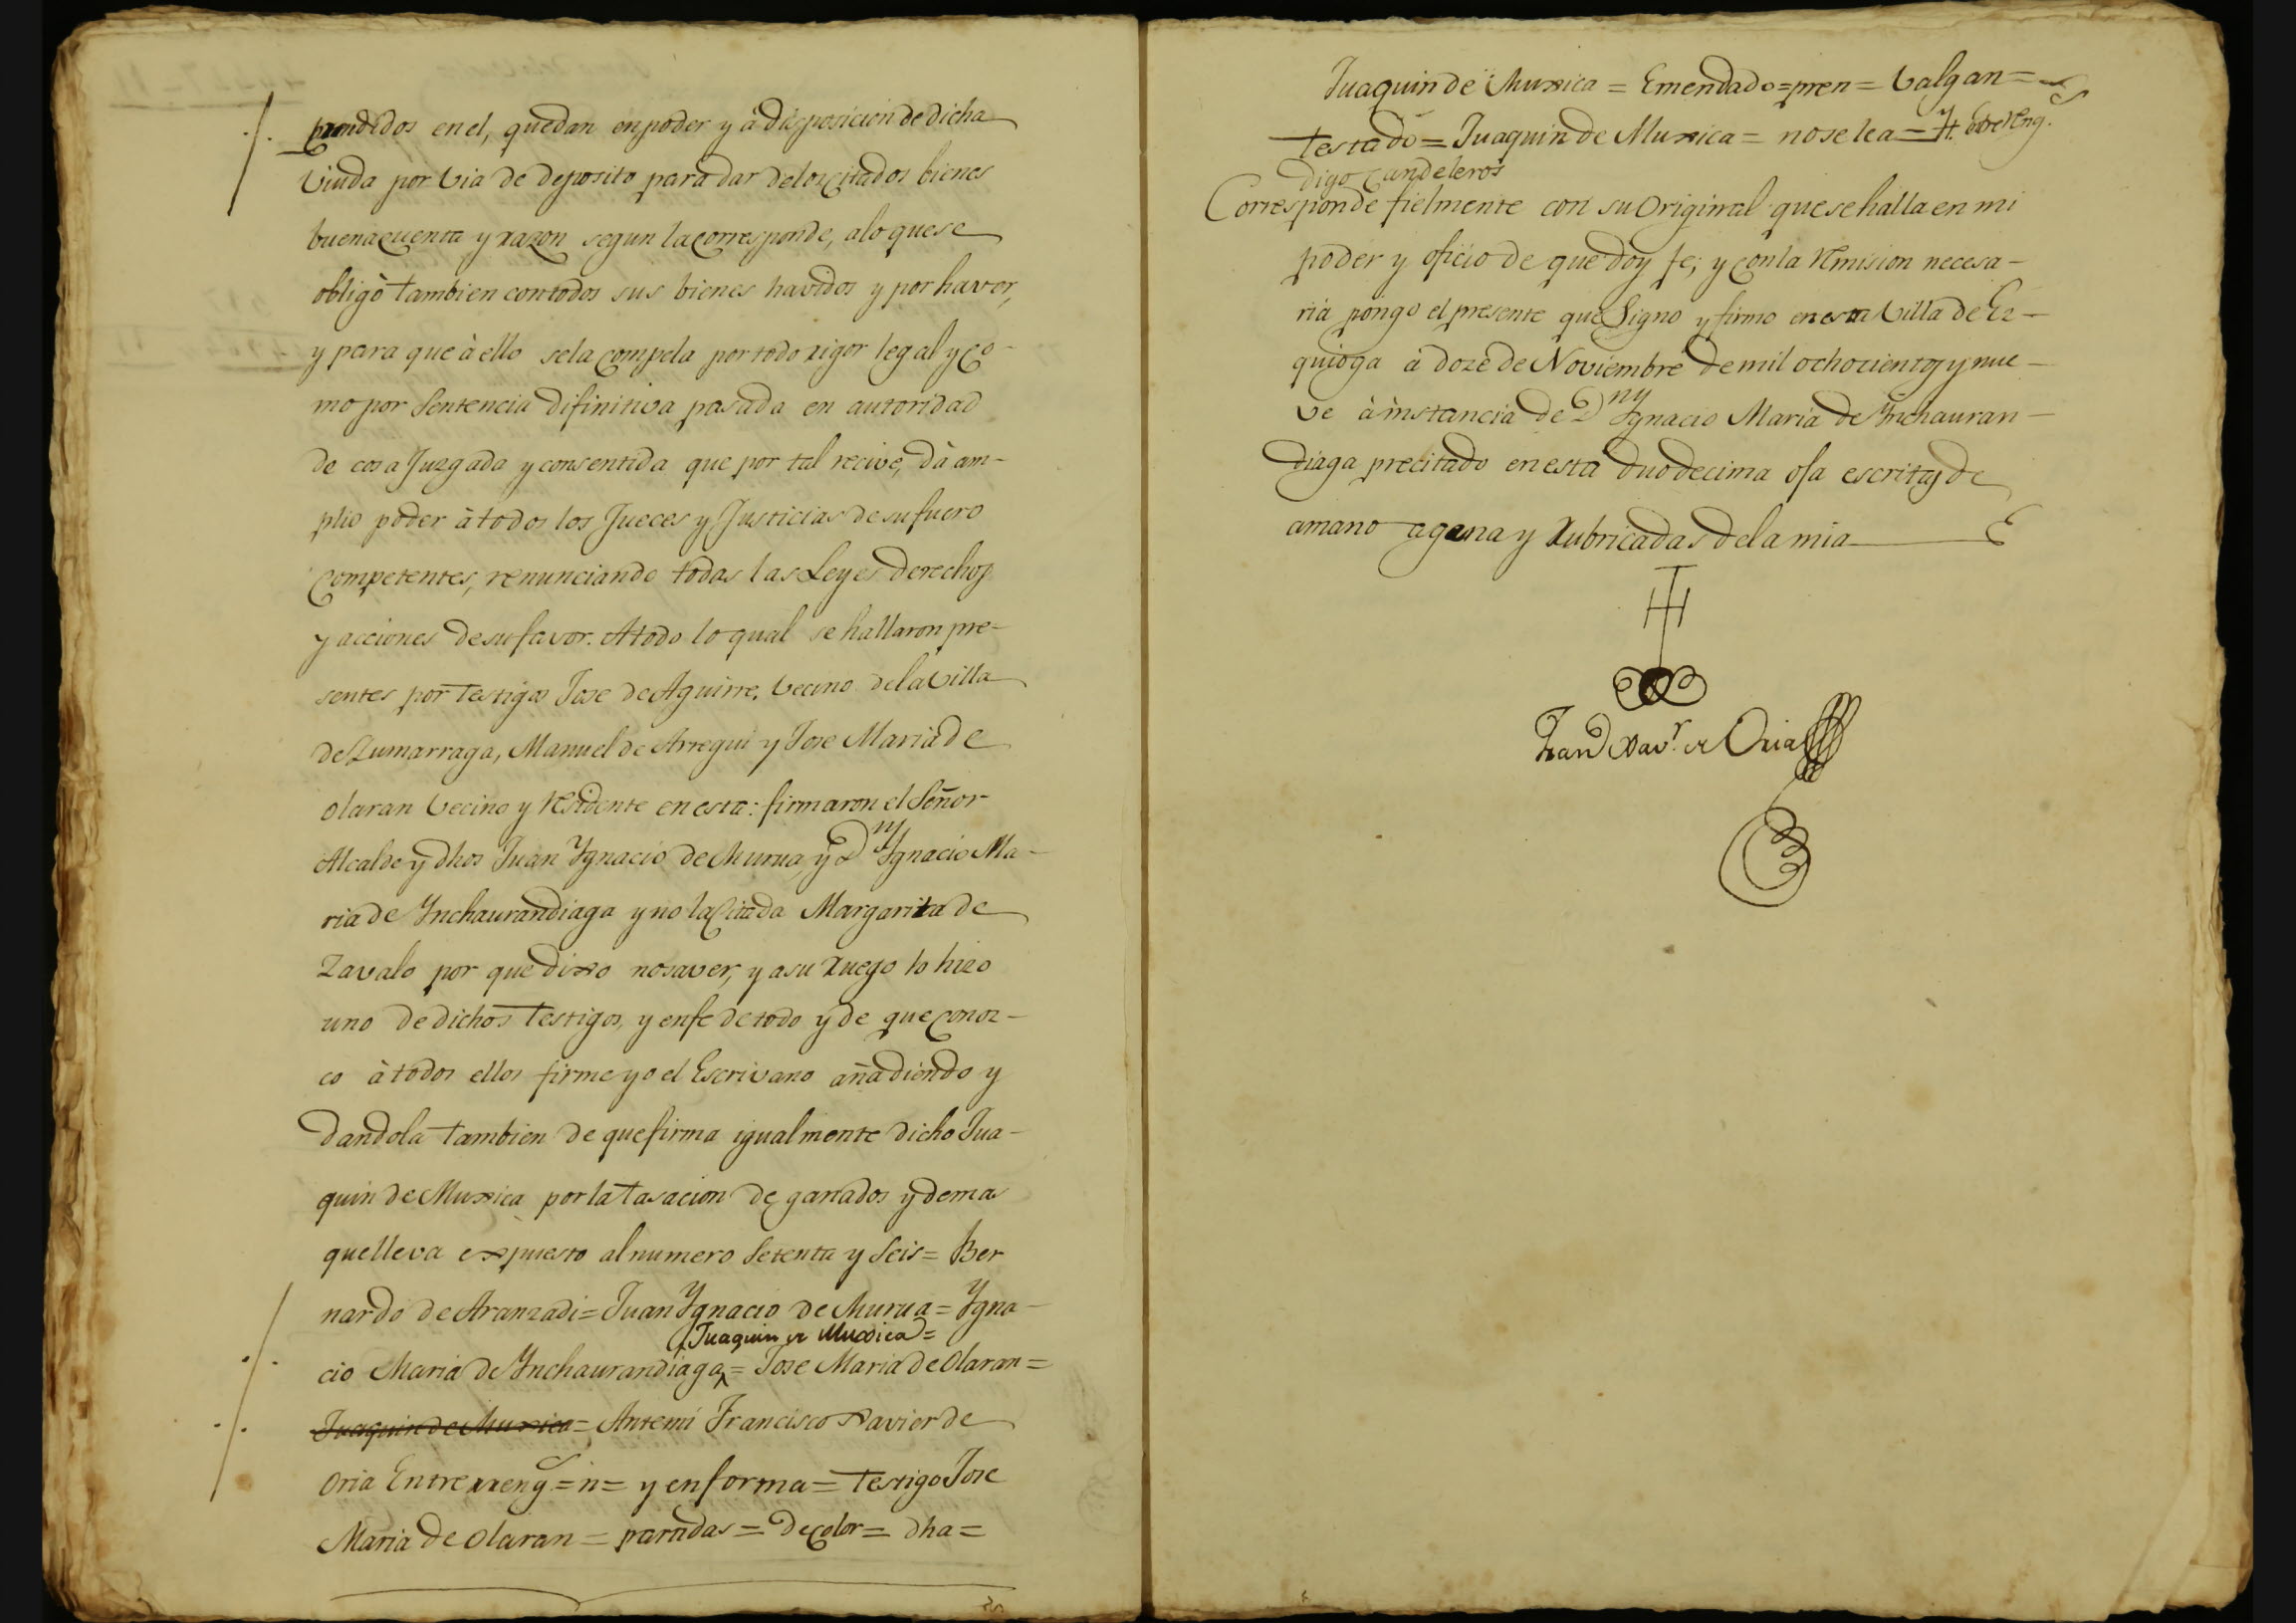 prendidos en el, quedan en poder y à disposicion de dicha
viuda por via de deposito para dar de los citados bienes
buena cuenta y razon segun la corresponde, a lo que se
obligò tambien con todos sus bienes havidos y por haver,
y para que à ello se la compela por todo rigor legal y co-
mo por Sentencia difinitiva pasada en autoridad
de cosa Juzgada y consentida que por tal recive, dà am-
plio poder à todos los Jueces y Justicias de su fuero
competentes, renunciando todas las Leyes derechos
y acciones de su favor. A todo lo qual se hallaron pre-
sentes por testigos Jose de Aguirre, vecino de la villa
de Zumarraga, Manuel de Arregui y Jose Maria de
Olaran vecino y residente en esta: firmaron el Señor
Alcalde y dhos Juan Ygnacio de Murua, y Dn Ygnacio Ma-
ria de Ynchaurandiaga y no la citada Margarita de
Zavalo por que dixo no saver, y a su ruego lo hizo
uno de dichos testigos, y en fe de todo y de que conoz-
co à todos ellos firme yo el Escrivano añadiendo y
dandola tambien de que firma igualmente dicho Jua-
quin de Muxica por la tasacion de ganados y demas
que lleva expuesto al numero Setenta y Seis = Ber
nardo de Aranzadi = Juan Ygnacio de Murua = Ygna-
Juaquin de Muxica =
cio Maria de Ynchaurandiaga = Jose Maria de Olaran =
Juaquin de Muxica = Ante mi Francisco Xavier de
Oria Entrereng.s = n = y en forma = testigo Jose
Maria de Olaran = paradas = de color = dha =
Juaquin de Muxica = Emendado = pren = valgan =
Testado = Juaquin de Muxica = no se lea = Yt. Entreng.
digo candeleros
Corresponde fielmente con su Original que se halla en mi
poder y oficio de que doy fe; y con la remision necesa-
ria pongo el presente que Signo y firmo en esta Villa de Ez-
quioga à doze de Noviembre de mil ochocientos y nue-
ve à instancia de Dn Ygnacio Maria de Ynchauran-
diaga precitado en esta duodecima oja escritas de
amano agena y rubricadas de la mia
Fran.co Xav.r de Oria